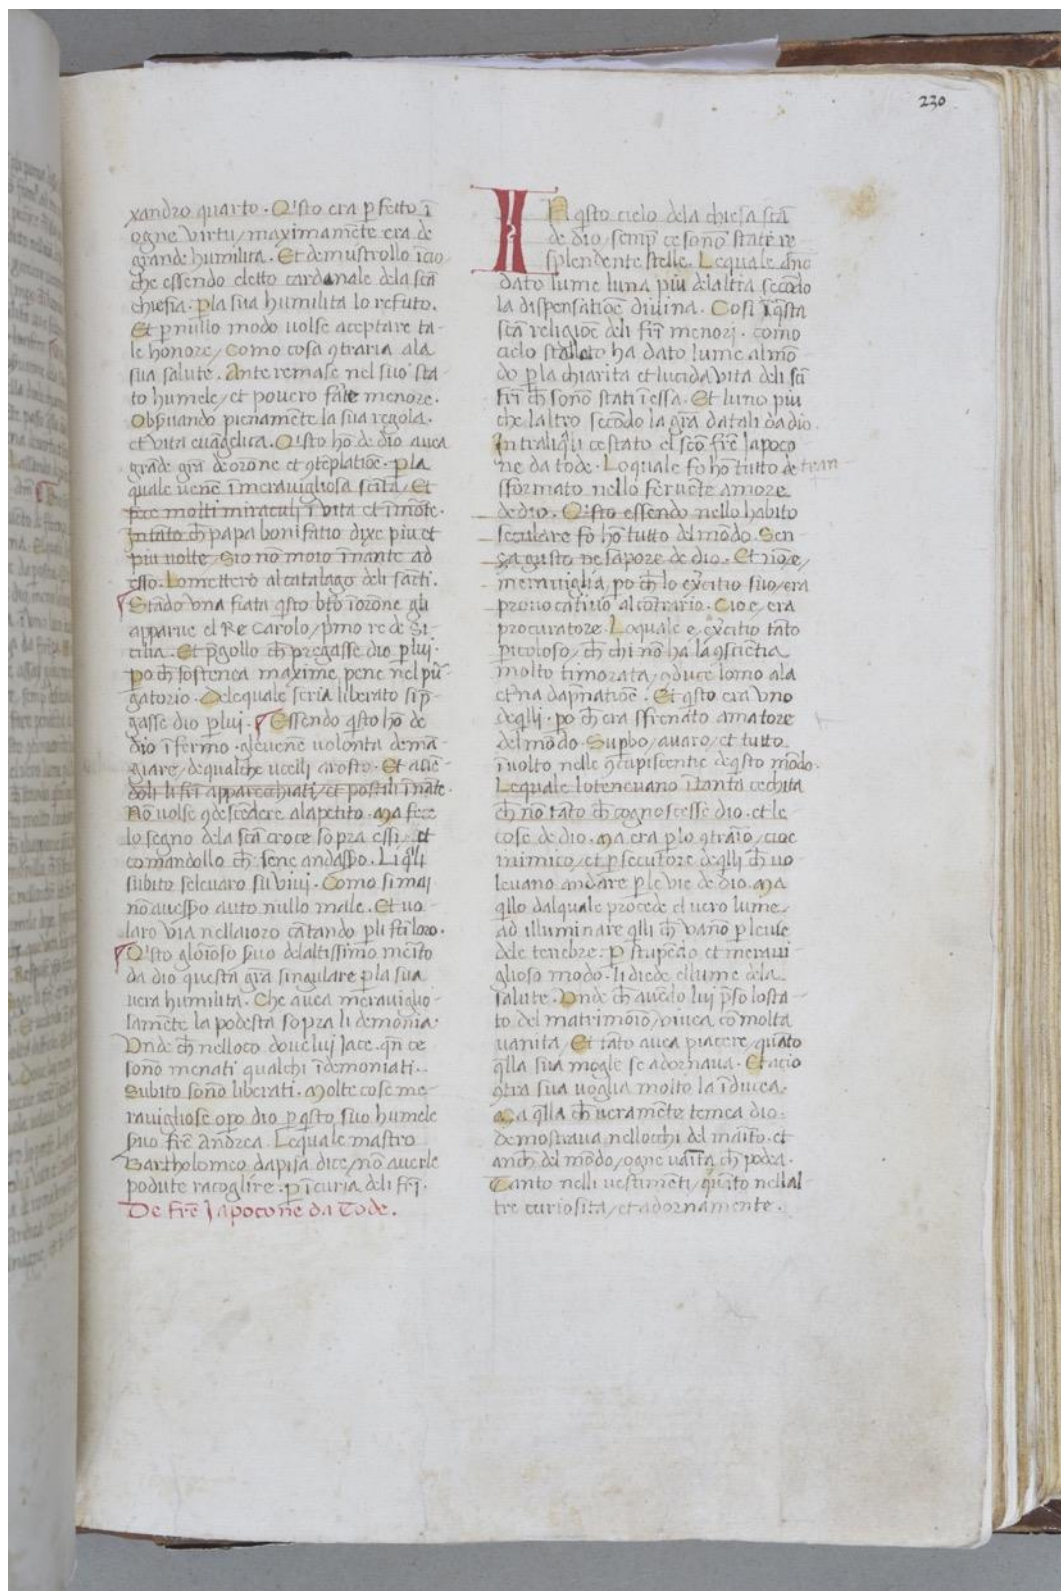 230
xandro quarto. Q̄sto era p̄fetto ī
ogne virtu/ maximam̄ete era de
grande humilita. Et demustrollo īcio
che essendo eletto cardenale dela scā
chiesia. p̄la sua humilita lo refuto.
Et p̄ nullo modo uolse aceptare ta-
le honore/ Como cosa 9traria ala
sua salute. Ante remase nel suo sta-
to humele/ et pouero frate menore.
Obs̄uando pienamēte la sua regola.
et vita euāgelica. Q̄sto hō de dio auea
grāde grā de orōne et 9tēplatiōe. p̄la
quale uenē ī merauigliosa sciētia/ Et
fece molti miraculj ī vita et ī mōte.
In tāto ch̄ papa bonifatio dixe piu et
piu uolte/ Sio nō moio īnante ad
esso. Lo mettero al catalago deli santi.
Stādo vna fiata q̄sto bt̄o ī orōne gli
apparue el Re Carolo/ p̄mo re de Si-
cilia. Et p̄gollo ch̄ pregasse dio p̄ lui.
po ch̄ sostenea maxime pene nel pur-
gatorio. Delequale seria liberato si p̄-
gasse dio p̄ lui. Essendo q̄sto hō de
dio īfermo. gleuenē uolonta de mā-
giare/ de qualche ucelli arosto. Et auē-
doli li frī apparecchiati/ et postili īnāte.
Nō uolse 9descēdere alapetito. Ma fece
lo segno dela scā croce sopra essi/ et
comandollo ch̄ sene andass̄o. Li q̄li
subito seleuaro su viuj. Como si mai
nō auess̄o auto nullo male. Et uo-
laro via nellaioro cātando p̄li fti loro.
Q̄sto glorioso s̄uo delaltissimo merito
da dio questa grā singulare p̄la sua
uera humilita. Che auea merauiglio-
samēte la podesta sopra li demonia.
Vnde ch̄ nelloco doue lui jace. qn̄ ce
sonō menati qualchi īdemoniati.
Subito sonō liberati. Molte cose me-
rauigliose opo dio p̄ q̄sto suo humele
s̄uo frē Andrea. Lequale mastro
Bartholomeo da pisa dice/ nō auerle
podute racoglire. p̄ īcuria deli frj.
De frē Japoconē da Tode.
IN q̄sto cielo dela chiesa scā
de dio/ semp̄ ce sonō state re-
splendente stelle. Lequale ānō
dato lume luna piu delaltra secōdo
la dispensatiōe diuina. Cosi ī q̄sta
scā religiōe deli frī menorj. como
cielo stellato ha dato lume al mō-
do p̄la chiarita et lucida vita deli sc̄i
frī ch̄ sonō stati īessa. Et luno piu
che laltro secōdo la grā data li da dio.
Intraliq̄li ce stato el scō frē Japoco
ne da tode. Loquale fo hō tutto de tran-
sformato nello feruēte amore
de dio. Q̄sto essendo nello habito
seculare fo hō tutto del mōdo. Sen-
za gusto ne sapore de dio. Et nō/e/
merauiglia, po ch̄ lo exercitio suo/ era
prouocatiuo al cōtrario. Cio e/ era
procuratore. Loquale e/ exercitio tāto
p̄icoloso/ ch̄ chi nō ha la 9sciētia
molto timorata/ 9duce lomo ala
et̄na dap̄natiōe. Et q̄sto era vno
deq̄lli. po ch̄ era sfrenato amatore
del mōdo. Sup̄bo/ auaro/ et tutto
īuolto nelle 9cupiscentie de q̄sto mōdo.
Lequale lo teneuano ī tanta cechita
ch̄ nō tāto ch̄ cognoscesse dio. et le
cose de dio. Ma era p̄ lo 9trario/ cioe
inimico/ et p̄secutore deq̄lli ch̄ uo-
leuano andare p̄ le vie de dio. Ma
q̄llo dalquale procede el uero lume/
ad illuminare q̄lli ch̄ vanō p̄ le uie
dele tenebre. p̄ stupēdo et meraui-
glioso modo. li diede el lume dela
salute. Vnde ch̄ auēdo lui p̄so lo sta-
to del matrimonio/ viuea cō molta
uanita/ Et tāto auea piacere/ quāto
q̄lla sua mogle se adornaua. Et acio
9tra sua uoglia molto la īducea.
Ma q̄lla ch̄ ueramēte temea dio.
demostraua nellocchi del marito. et
anch̄ del mōdo/ ogne uanita ch̄ podea.
Tanto nelli uestimēti/ quāto nellal-
tre curiosita/ et adornamente.